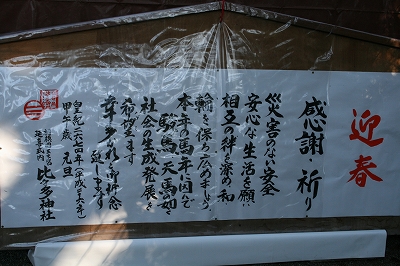 迎春
感謝・祈り
災害のない安全
安心な生活を願い
相互の絆を深め和
輪を保ち広めましょう
本年の馬年に因んで
駿馬天馬の如き
社会の生成発展を
希望します
幸多かれと御祈念
致します
皇紀二六七四年(平成二十六年)
甲午歳 元旦
延喜式内
比々多神社